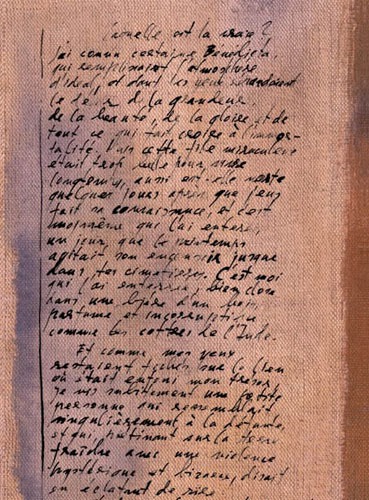 Laquelle est la vraie?
J'ai connu certaine Benedicta,
qui remplissait l'atmosphère
d'idéal, et dont les yeux répandaient
le désir de la grandeur,
de la beauté, de la gloire et de
tout ce qui fait croire à l'immor-
talité. Mais cette fille miraculeuse
était trop belle pour vivre
longtemps, aussi est-elle morte
quelques jours après que j'eus
fait sa connaissance, et c'est
moi-même qui l'ai enterrée,
un jour que le printemps
agitait son encensoir jusque
dans les cimetières. C'est moi
qui l'ai enterrée, bien close
dans une bière d'un bois
parfumé et incorruptible
comme les coffres de l'Inde.
Et comme mes yeux
restaient fichés sur le lieu
où était enfoui mon trésor
je vis subitement une petite
personne qui ressemblait
singulièrement à la défunte,
et qui, piétinant sur la terre
fraîche avec une violence
hystérique et bizarre, disait
en éclatant de rire